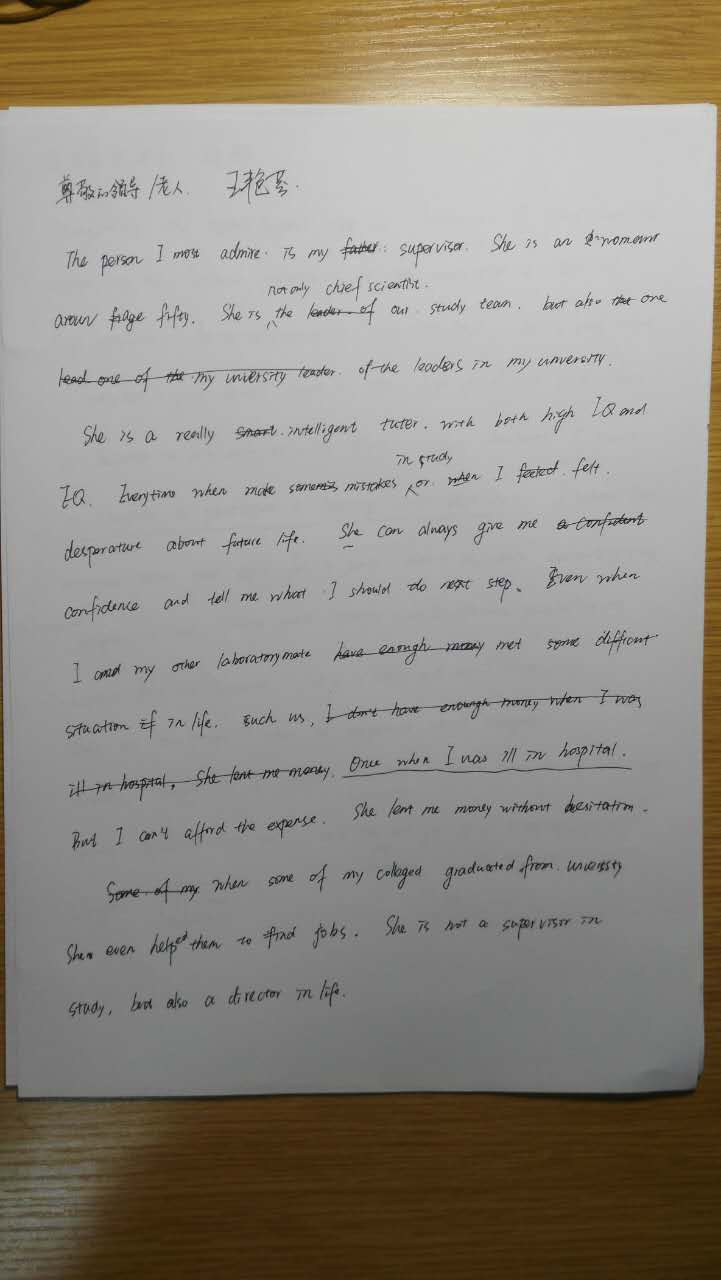 尊敬的领导/老人. 王艳芬.
The person I most admire. is my father: supervisor. She is an woment
not only chief scientist.
aroun age fifty. She is the leader of our study team. but also that one
lead one of the my university leader. of the leaders in my unversity.
She is a really smart. intelligent tuter. with both high IQ and
in study
EQ. Everytime when make mistakes or when I feeled felt.
desperature about future life. She can always give me a confident
confidence and tell me what I should do next step. Even when
I and my other laboratorymate have enough money met some difficut
situation if in life. such us, I don't have enough money when I was
ill in hospital. She lent me money. Once when I was ill in hospital.
But I can't afford the expense. She lent me money without hesitation.
Some of my when some of my collaged graduated from university
She even helped them to find jobs. She is not a supervisor in
study, but also a director in life.